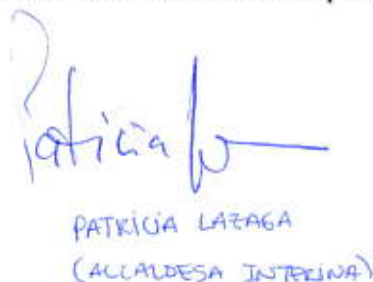 Patricia
PATRICIA LAZAGA
(ALCALDESA INTERINA)